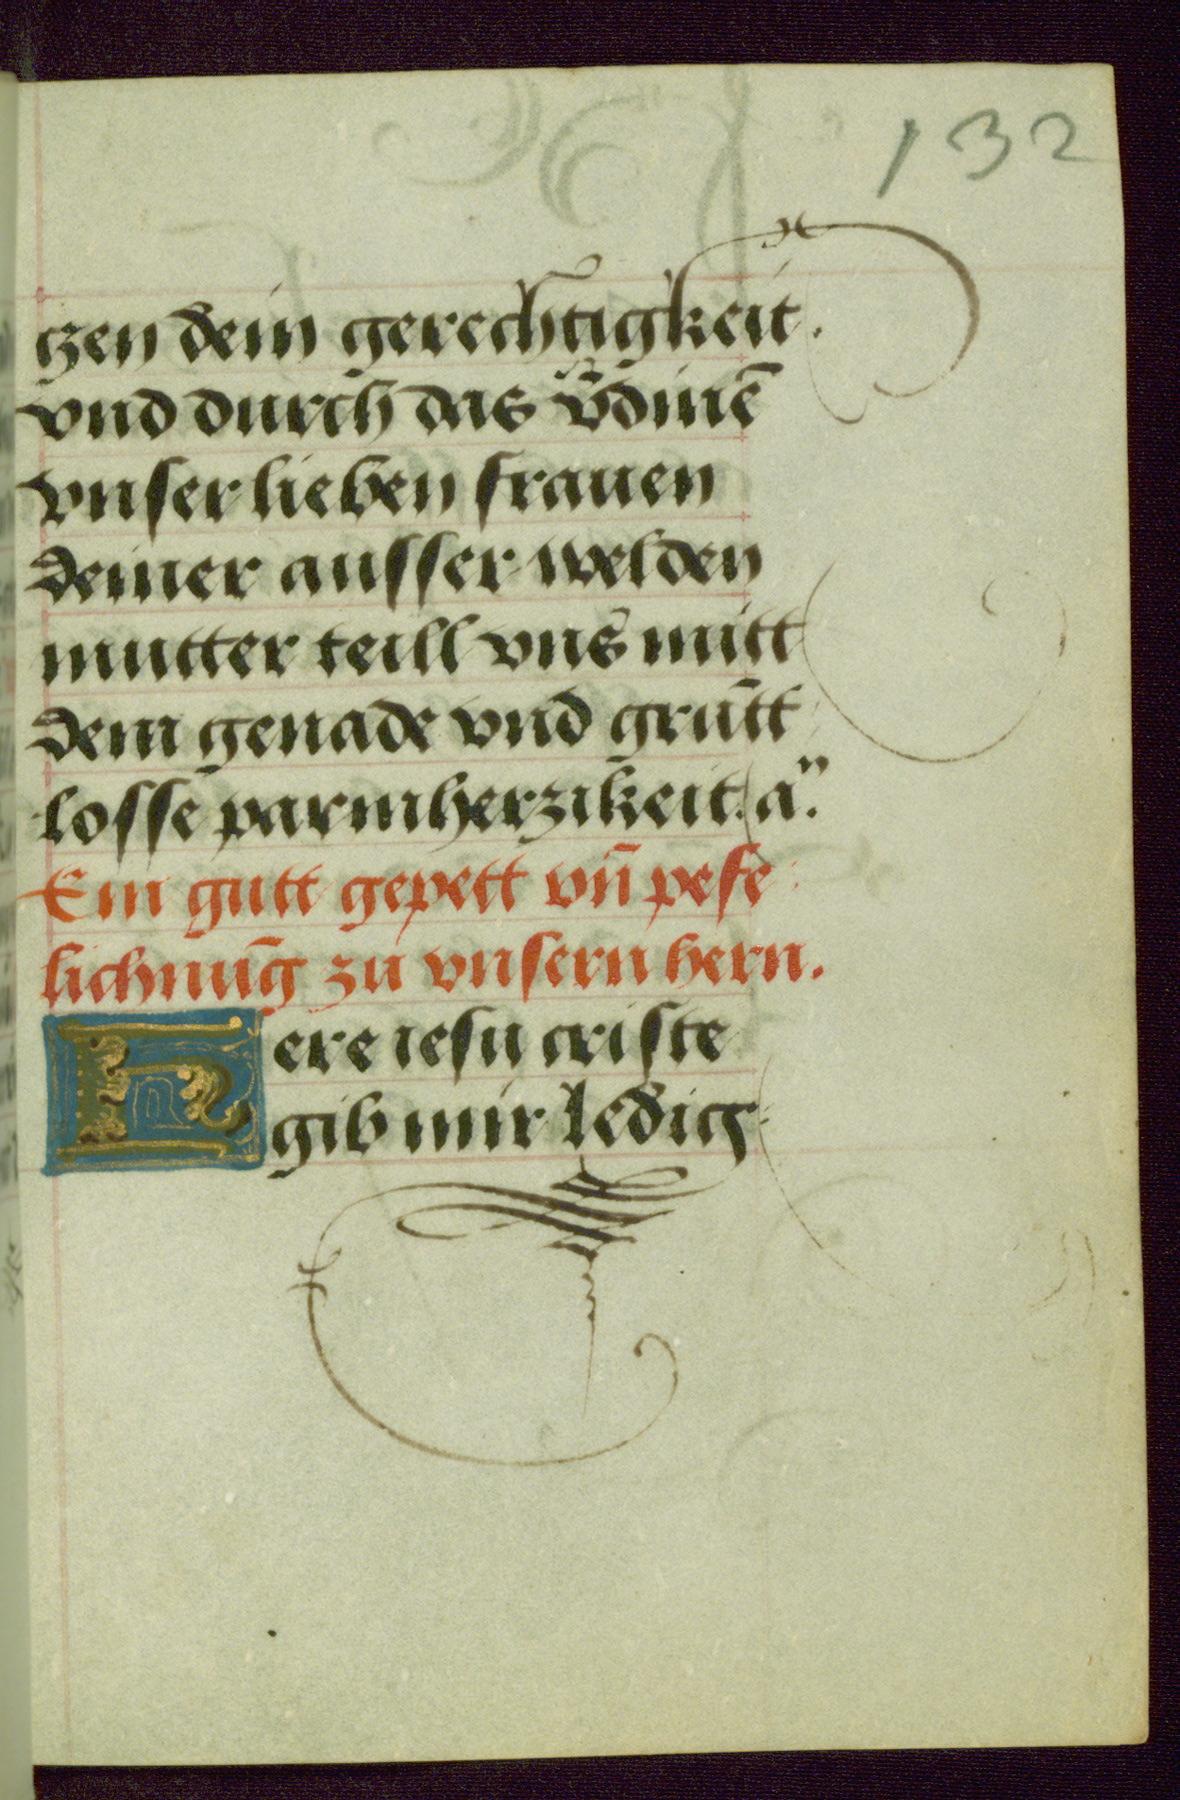 132
czen dein gerechtigkeit.
vnd durch das v̄dinē
vnser lieben frauen
deiner ausser welden
mutter teill vns mitt
dein genade vnd grutt
losse parmherzikeit. a".
Ein gutt gepett vn̄ pefe
lichnūg zu vnsern hern.
Here iesu criste
gib mir ledig